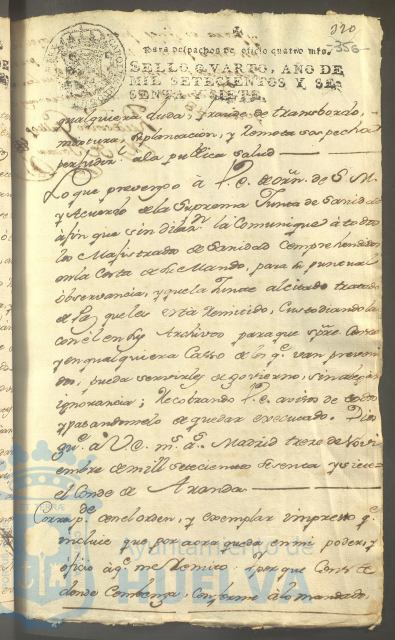 320
356
Para despachos de oficio quatro mrs.
SELLO QVARTO, AÑO DE
MIL SETECIENTOS Y SE-
SENTA Y SIETE.
qualquiera duda, fraude de transbordo,
mixtura, suplantacion, y remota sospecha
a la publica salud
Lo que prevengo à V.E. de orñ. de S.M.
y Acuerdo de la Suprema Junta de Sanidad
à fin que sin dilaçn. la Comunique à todos
los Magistrados de Sanidad Comprehendidos
en la Costa de su Mando, para su puntual
observancia, y que la Unan al citado tratado
de Paz que les esta remitido, Custodiandola
con el en sus Archivos para que spre. Conste
y en qualquiera Casso de los q.e van preveni
dos, pueda servirles de govierno, sin alegar
ignorancia; Recobrando V.E. avisos de
y pasandomelo de quedar executado. Dios
gu.e à V.E. m.s a.s Madrid treze de Novi
embre de mill setecientos sesenta y siete
el Conde de Aranda
Corresp.de con el orden, y exemplar impreso q.e
incluie que por aora queda en mi poder, y
oficio à q.e me Remito: y porque Conste
donde Combenga, Conforme a lo mandado
Ayuntamiento de
HUELVA